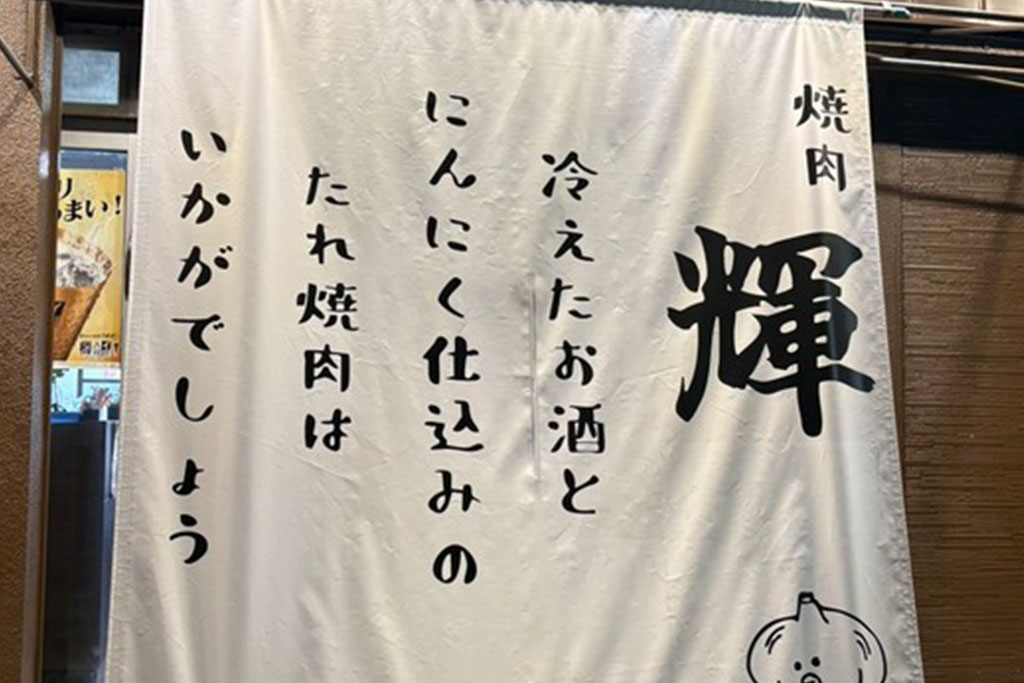 焼肉
輝
冷えたお酒と
にんにく仕込みの
たれ焼肉は
いかがでしょう
まい!